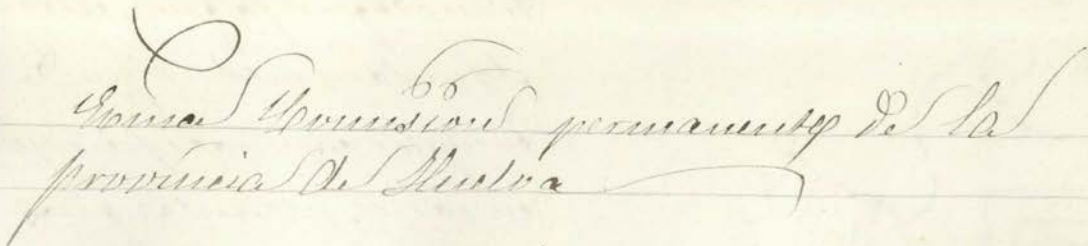 Exma Comision permanente de la
provincia de Huelva